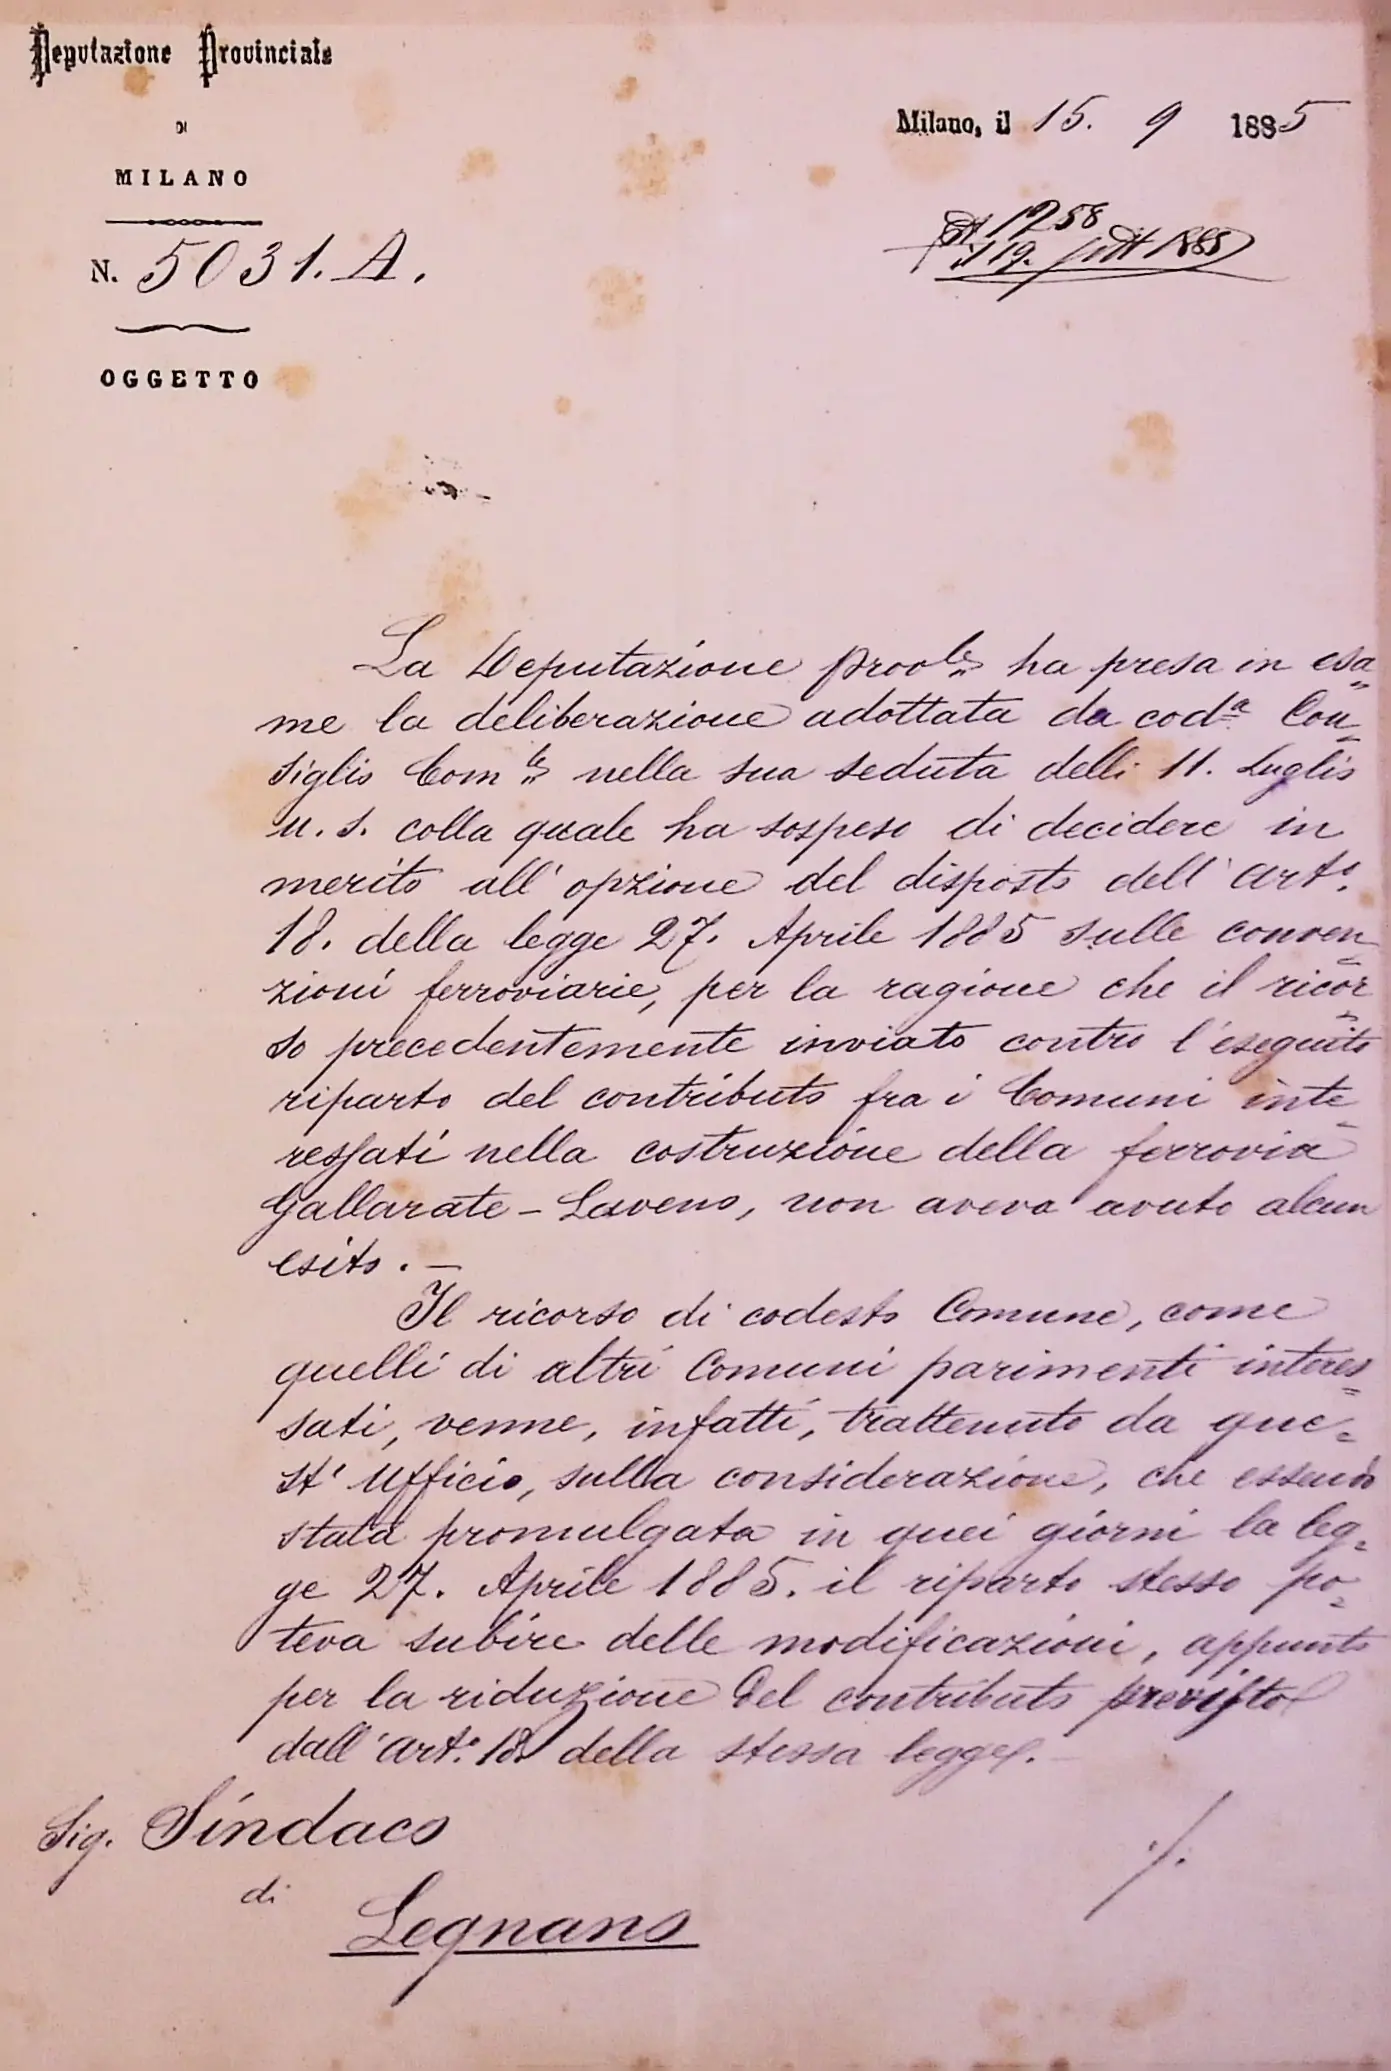 Deputazione Provinciale
DI
MILANO
N. 5031. A.
OGGETTO
Milano, il 15. 9 1885
1258
19. Sett 1885
La Deputazione Prov.le ha presa in esa
me la deliberazione adottata da cod.a Con
siglio Com.le nella sua seduta delli 11. Luglio
u. s. colla quale ha sospeso di decidere in
merito all'opzione del disposto dell'art.o
18. della legge 27. Aprile 1885 sulle conven
zioni ferroviarie, per la ragione che il ricor
so precedentemente inviato contro l'eseguito
riparto del contributo fra i Comuni inte
ressati nella costruzione della ferrovia
Gallarate - Laveno, non aveva avuto alcun
esito. -
Il ricorso di codesto Comune, come
quelli di altri Comuni parimenti interes
sati, venne, infatti, trattenuto da que-
st'Ufficio, sulla considerazione, che essendo
stata promulgata in quei giorni la leg-
ge 27. Aprile 1885. il riparto stesso po-
teva subire delle modificazioni, appunto
per la riduzione del contributo previsto
dall'art.o 18 della stessa legge. -
Sig. Sindaco
di
Legnano
./.